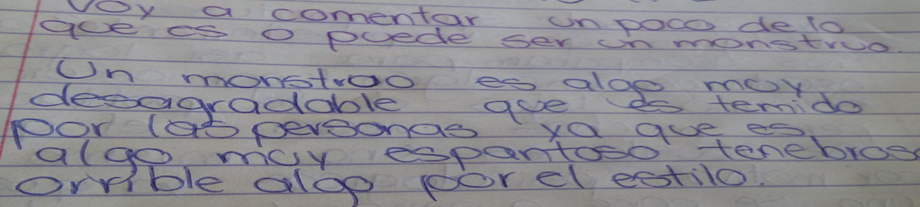 Voy a comentar un poco de lo
que es o puede ser un monstruo.
Un monstruo es algo muy
desagradable que es temido
por las personas ya que es
algo muy espantoso tenebroso
orrible algo por el estilo.